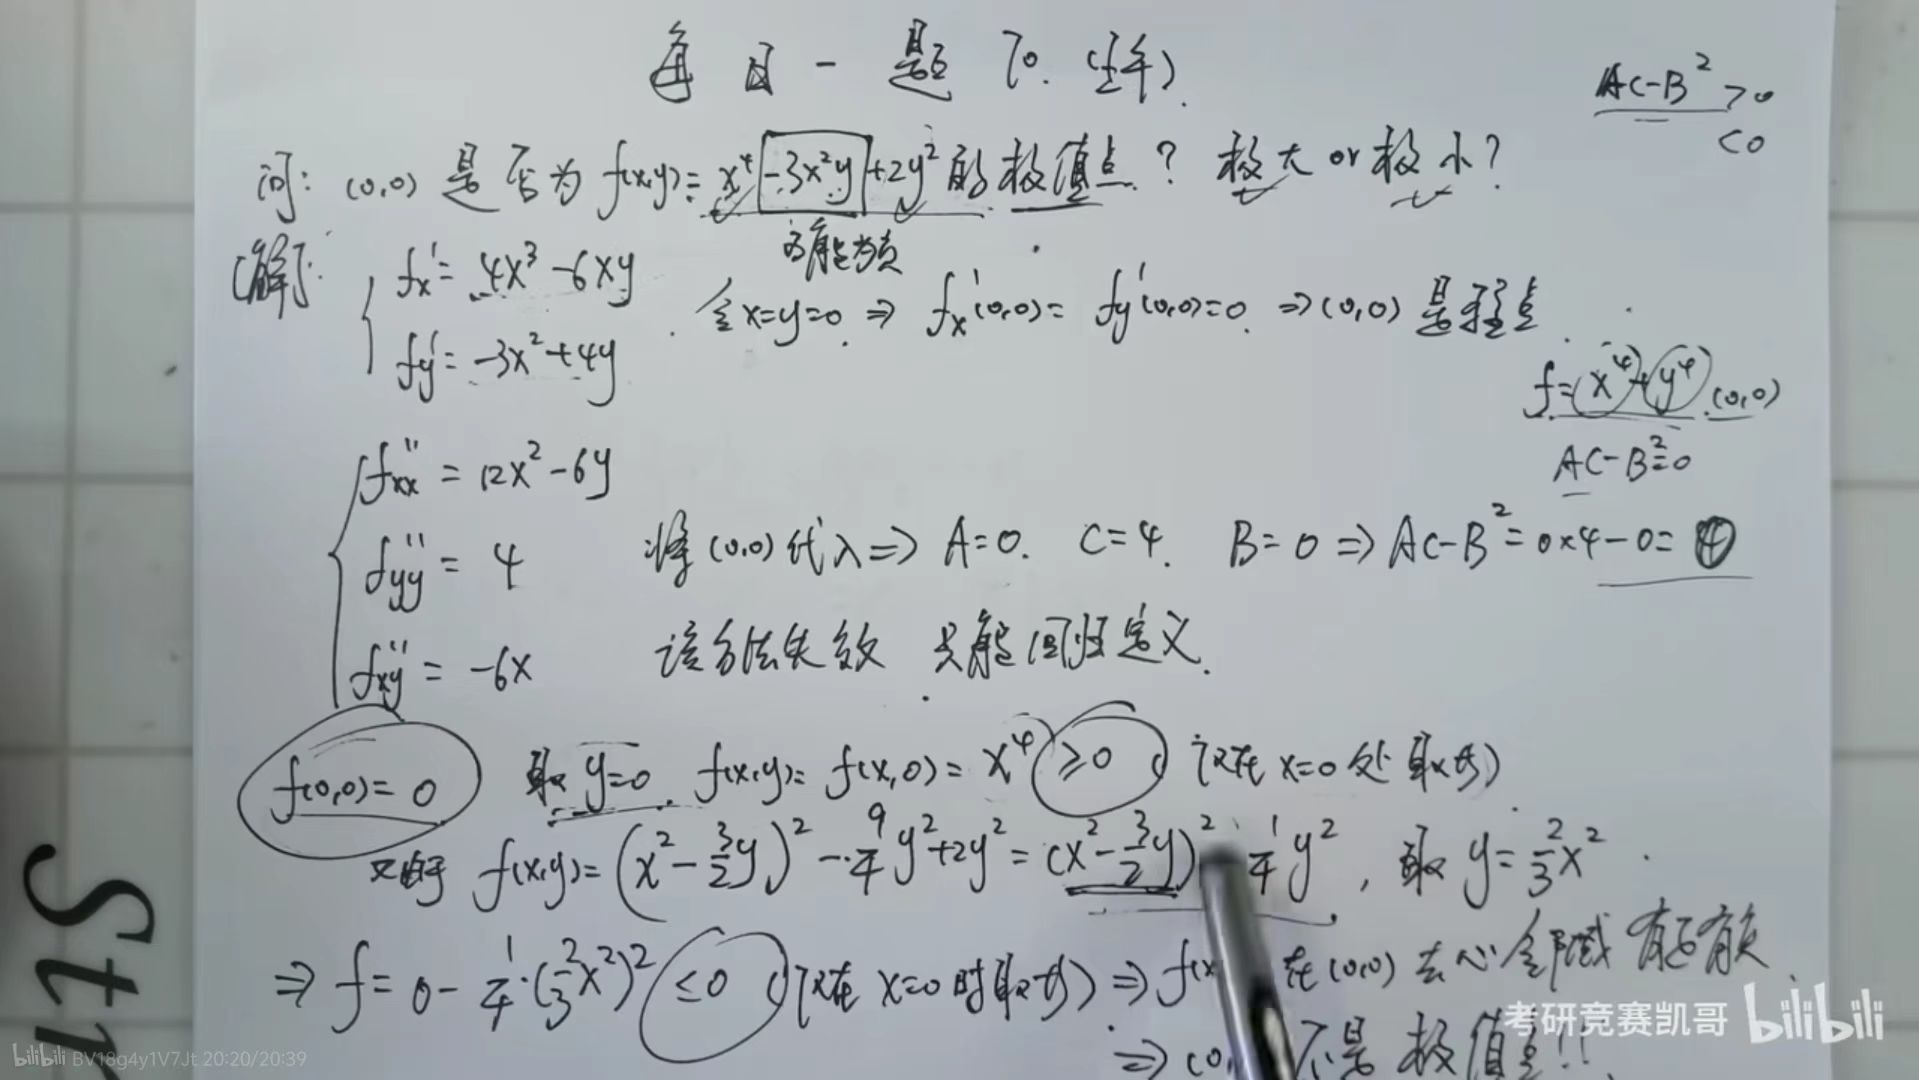 每日一题 70. (生年).
AC-B²>0
<0
问: (0,0) 是否为 f(x,y)= x⁴-3x²y+2y² 的极值点? 极大 or 极小?
可能为负
(解):
fx'= 4x³-6xy
fy'= -3x²+4y
令x=y=0. ⇒ fx'(0,0)= fy'(0,0)=0. ⇒(0,0) 是驻点.
f=x⁴+y⁴ (0,0)
AC-B²=0
fxx''= 12x²-6y
fyy''= 4
fxy''= -6x
将(0,0)代入⇒ A=0. C=4. B=0 ⇒ AC-B²=0×4-0=0
该方法失效 只能回归定义.
f(0,0)=0 取 y=0. f(x,y)= f(x,0)= x⁴≥0 (仅在 x=0 处取0)
又由于 f(x,y)=(x²-3/2y)²-9/4y²+2y²=(x²-3/2y)² 1/4y², 取 y=2/3x².
⇒ f= 0-1/4·(2/3x²)²≤0 (仅在 x=0时取0) ⇒ f(x 在(0,0) 去心邻域 有正有负.
⇒ (0, 不是 极值点!!
St
考研竞赛凯哥 bilibili
bilibili BV18g4y1V7Jt 20:20/20:39